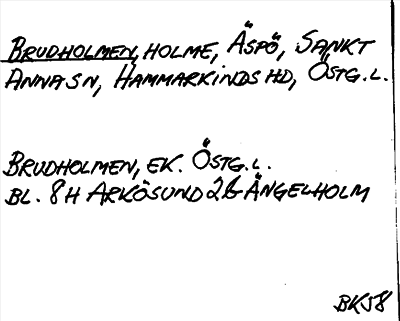 BRUDHOLMEN, HOLME, ÄSPÖ, SANKT
ANNA SN, HAMMARKINDS HD, ÖSTG.L.
BRUDHOLMEN, EK. ÖSTG.L.
BL. 8H ARKÖSUND 2b ÄNGELHOLM
BK58